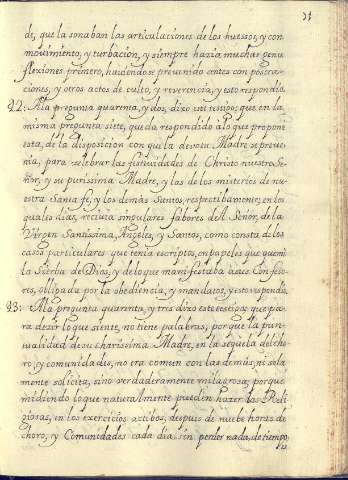 de, que la sonaban las articulaciones de los huessos, y con
movimiento, y turbacion, y siempre hazia muchas genu
flexiones primero, haciendose preuenido antes con postra-
ciones, y otros actos de culto, y reverencia, y esto respondio
42: Ala pregunta quarenta, y dos, dixo este testigo: que en la
misma pregunta siete, queda respondido à lo que propone
esta, de la disposicion con que la devota Madre se preve-
nia, para selebrar las festividades de Christo nuestro Se-
ñor, y su purissima Madre, y las de los misterios de nu-
estra Santa fe, y los demas Santos, respectibamente; en los
quales dias, recivia singulares fabores de el Señor, de la
Virgen Santissima, Angeles, y Santos, como consta de los
casos particulares que tenia escriptos, en papeles que quemò
la Sierba de Dios, y de lo que manifestaba à sus Confeso-
res, obligada por la obediencia, y mandatos, y esto respondio.
43: Ala pregunta quarenta, y tres dixo este testigo: que pa-
ra dezir lo que siente, no tiene palabras, porque la pun-
tualidad de su charissima Madre, en la sequela del cho-
ro, y comunidades, no era comun con las demàs, ni sola
mente solicita, sino verdaderamente milagrosa; porque
midiendo lo que naturalmente pueden hazer las Reli
giosas, en los exercicios actibos, despues de nuebe horas de
choro, y Comunidades cada dia, sin perder nada de tiempo